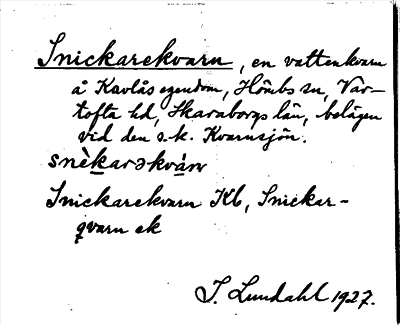 Snickarekvarn, en vattenkvarn
å Kavlås egendom, Hömbs sn, Var-
tofta hd, Skaraborgs län, belägen
vid den s.k. Kvarnsjön.
snèkarəkván
Snickarekvarn Kb, Snickar-
qvarn ek
I. Lundahl 1927.